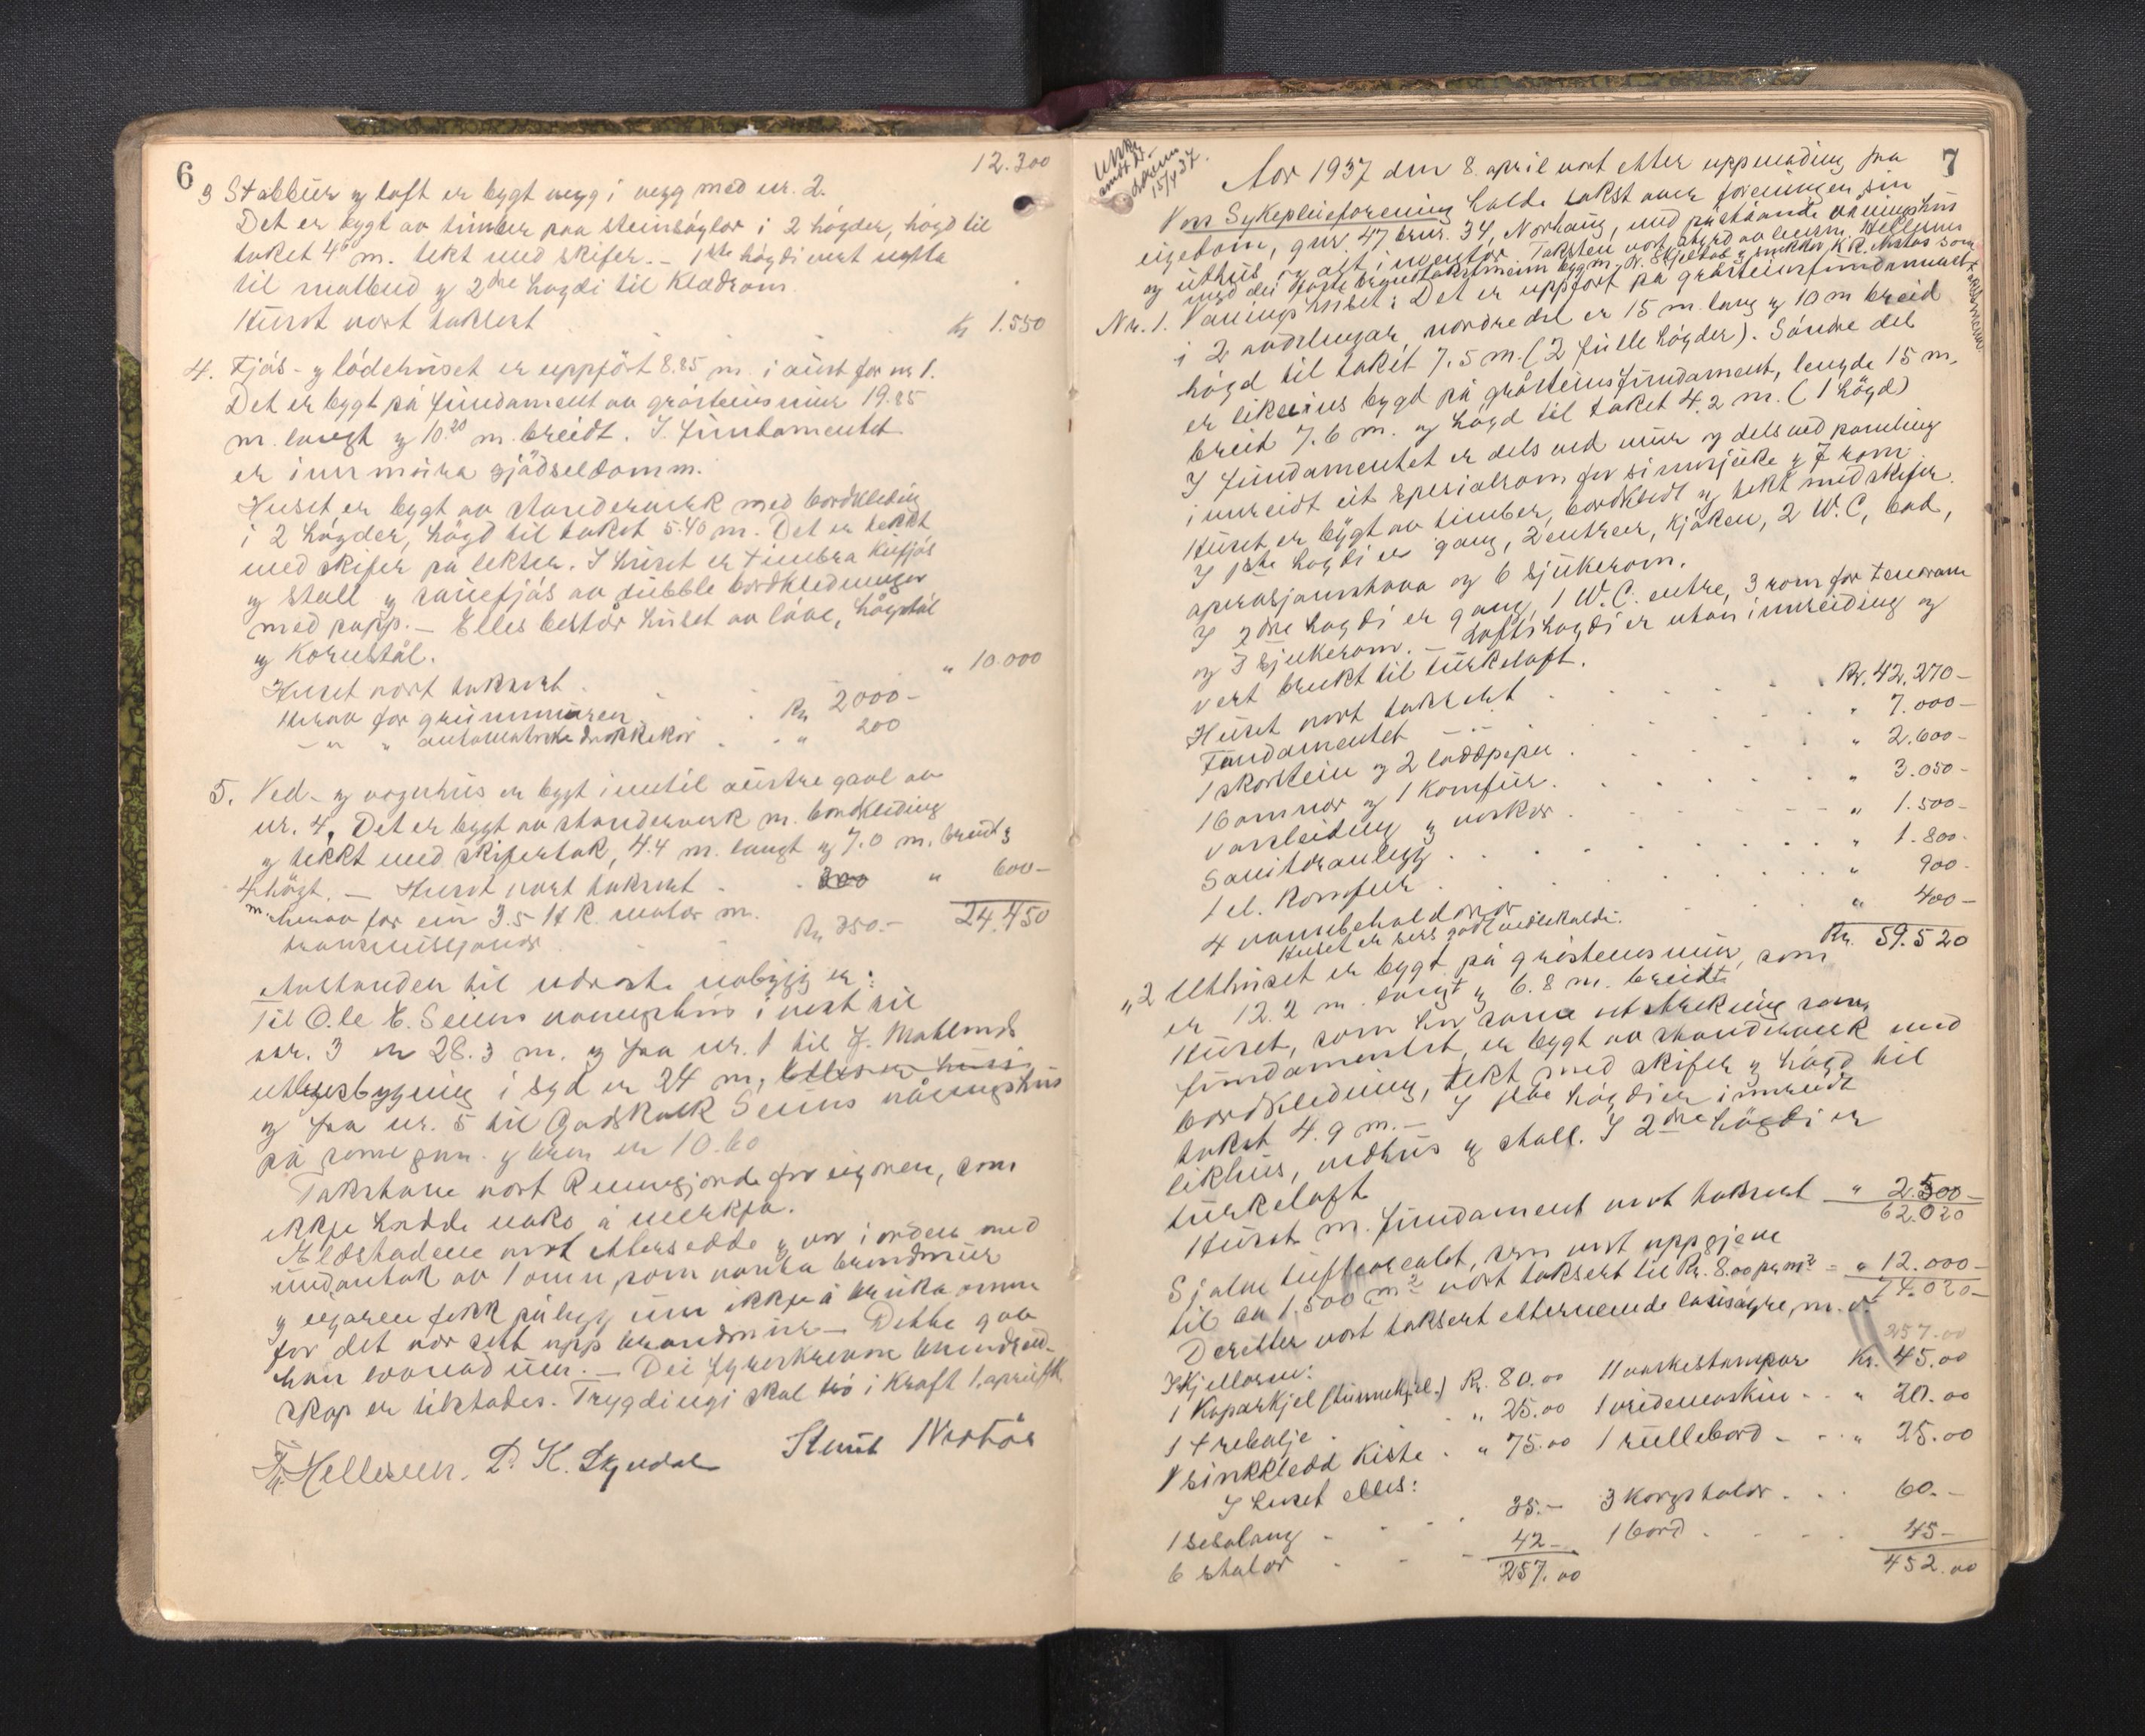 6
12.300
3 Stabbur og loft er bygt vegg i vegg med nr. 2.
Det er bygt av timber paa steinsøylor i 2 högder, högd til
taket 4 m. tekt med skifer. – 1ste högdi vert nytta
til matbud og 2dre högdi til klædrom.
Huset vart taksert Kr 1.550
4. Fjös- og lödehuset er uppfört 8.85 m. i aust for nr 1.
Det er bygt på fundament av gråsteinsmur 19.85
m. langt og 10.20 m. breidt. I fundamentet
er innmura gjödseldamm.
Huset er bygt av standerverk med bordkleding
i 2 högder, högd til taket 5.40 m. Det er tekkt
med skifer på lekter. I huset er timbra kufjös
og stall og sauefjös av dubble bordkledningar
med papp. – Elles består huset av låve, höystål
og kornstål.
Huset vart taksert " 10.000
Herav for grunnmuren Kr 2000-
– " – " automatiske drikkekar " 200
5. Ved- og vognhus er bygt inntil austre gavl av
nr. 4. Det er bygt av standerverk m. bordkleiding
og tekkt med skifertak, 4.4 m. langt og 7.0 m. breidt og
4 m. högt. – Huset vart taksert 300 " 600-
herav for ein 3.5 H.K. motor m.
transmisjonar Kr 350.- 24.450
Avstanden til næraste nabygg er:
Til Ole E. Seims vaaningshus i vest til
nr. 3 er 28.3 m. og fra nr. 1 til J. Mahlands
uthusbygning i syd er 24 m,
og fra nr. 5 til Godskalk Seims våningshus
på same gnr. og bnr. er 10.60
Takstane vart kunngjorde for eigaren, som
ikkje hadde noko å merkja.
Eldstadene vart ettersedde og var i orden med
undantak av 1 omn som vanta brandmur
og eigaren fekk pålegg um ikkje å bruka omnen
för det var sett upp brandmur – Dette gav
han lovnad um. – Dei fyreskrevne brandred-
skap er tilstades. Trygdingi skal tre i kraft 1. april ftk.
Th. Hellesen. D. K. Skjerdal Knut Nestås
7
Utskr.
sendt
15/4 37.
Aar 1937 den 8. april vart etter uppmoding fra
Voss Sykepleieforening halde takst over foreningen sin
eigedom, gnr 47 bnr. 34, Norhaug, med påståande våningshus
og uthus og alt inventar. Taksten vart styrd av lensm. Hellesen
med dei faste branntakstmenn bygm. D. Skjeldal og snikkar K.R. Nestås som
takstmenn.
Nr. 1. Vaaningshuset: Det er uppfört på gråsteinsfundament
i 2 avdelingar, nordre del er 15 m. lang og 10 m breid
högd til taket 7.5 m. (2 fulle högder). Söndre del
er likeeins bygd på gråsteinsfundament, lengde 15 m,
breid 7.6 m. og högd til taket 4.2 m. (1 högd)
I fundamentet er dels ved mur og dels ved paneling
innreidt eit spesialrom for sinnsjuke og 7 rom.
Huset er bygt av timber, bordkledt og tekt med skifer.
I 1ste högdi er gang, 2 entreer, kjöken, 2 W.C, bad,
operasjonsstova og 6 sjukerom.
I 2dre högdi er gang, 1 W.C. entre, 3 rom for tenarane
og 3 sjukerom. – Loftshögdi er utan innreiding og
vert brukt til turkeloft.
Huset vart taksert Kr. 42.270-
Fundamentet " 7.000-
1 skorstein og 2 luddpipur " 2.600-
16 omnar og 1 komfur " 3.050-
Vassleiding og vaskar " 1.500-
Sanitæranlegg " 1.800-
1 el. komfur " 900-
4 vannbehaldarar " 400-
Huset er sers godt vedlikehalde. Kr. 59.520
" 2 Uthuset er bygt på gråsteinsmur, som
er 12.2 m. langt og 6.8 m. breidt.
Huset, som har same utstrekning som
fundamentet, er bygt av standerverk med
bordkledning, tekt med skifer og högd til
taket 4.9 m. – I 1ste högdi er innreidt
likhus, vedhus og stall. I 2dre högdi er
turkeloft
Huset m. fundament vart taksert " 2.500-
62.020
Sjølve tuftearealet, som vart uppgjeve
til ca 1.500 m2 vart taksert til Kr. 8.00 pr. m2 = " 12.000-
74.020-
Deretter vart taksert etternemnde lausøyre, m. v.
257.00
I kjellaren:
1 Koparkjel (brunnkjel.) Kr. 80.00 11 vaskestampar Kr. 45.00
1 trebalje " 25.00 1 vridemaskin " 20.00
1 sinkkledd kiste " 75.00 1 rullebord " 25.00
I huset elles:
1 sebalong 35.- 3 korgstolar 60.-
6 stolar 42- 1 bord 45-
257.00 452.00